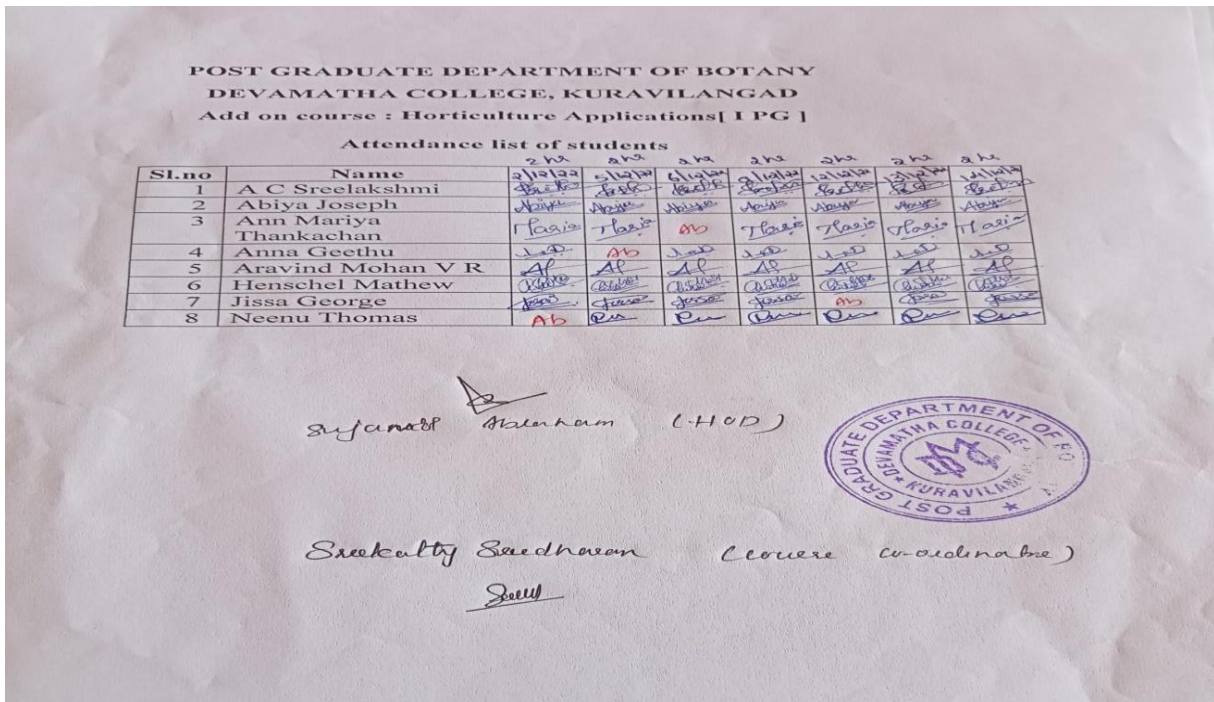 POST GRADUATE DEPARTMENT OF BOTANY
DEVAMATHA COLLEGE, KURAVILANGAD
Add on course : Horticulture Applications[ I PG ]
Attendance list of students
2 hr 2 hr 2 hr 2 hr 2 hr 2 hr 2 hr
Sl.no Name 2/12/22 5/12/22 6/12/22 9/12/22 12/12/22 13/12/22 14/12/22
1 A C Sreelakshmi
2 Abiya Joseph Abiya Abiya Abiya Abiya Abiya Abiya Abiya
3 Ann Mariya Thankachan Maria Maria Ab Maria Maria Maria Maria
4 Anna Geethu Ab
5 Aravind Mohan V R
6 Henschel Mathew
7 Jissa George Ab
8 Neenu Thomas Ab
Abraham (HOD)
POST GRADUATE DEPARTMENT OF BO
DEVAMATHA COLLEGE
KURAVILAN
Sreekutty Sreedharan (course co-ordinator)